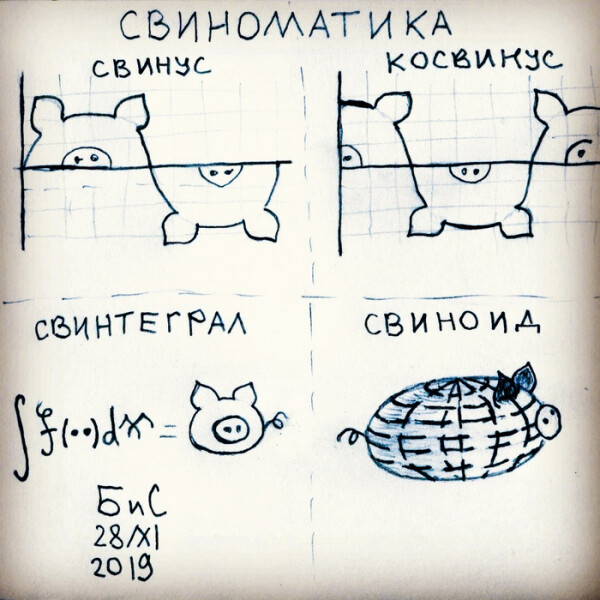 СВИНОМАТИКА
СВИНУС
КОСВИНУС
СВИНТЕГРАЛ
СВИНОИД
∫f(••)dx =
БиС
28/XI
2019